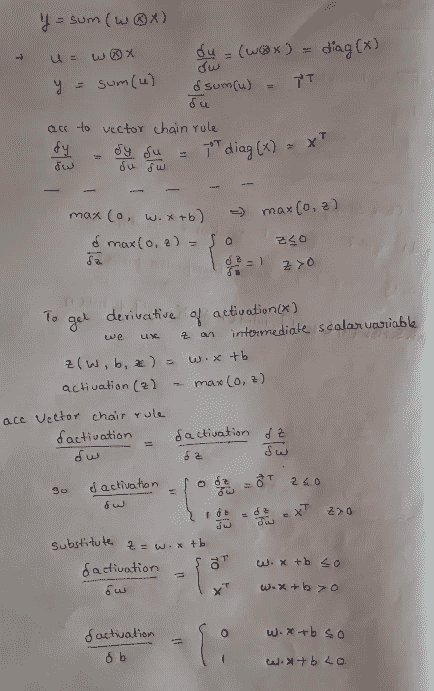 y = sum(w ⊗ x)
→ u = w ⊗ x   δu/δw = (w⊗x) = diag(x)
y = sum(u)   δsum(u)/δu = 1⃗ᵀ
acc to vector chain rule
δy/δw = δy/δu δu/δw = 1⃗ᵀ diag(x) = xᵀ
— — — — — —
max(0, w.x+b) ⇒ max(0, z)
δ/δz max(0, z) = { 0   z≤0
δz/δz = 1   z>0
To get derivative of activation(x)
we use z as intermediate scalar variable
z(w, b, x) = w.x + b
activation(z) = max(0, z)
acc Vector chair rule
δactivation/δw = δactivation/δz δz/δw
so δactivation/δw = { 0 δz/δw = 0⃗ᵀ   z≤0
1 δz/δw = δz/δw = xᵀ   z>0
substitute z = w.x + b
δactivation/δw = { 0⃗ᵀ   w.x + b ≤0
xᵀ   w.x + b >0
δactivation/δb = { 0   w.x + b ≤0
1   w.x + b <0